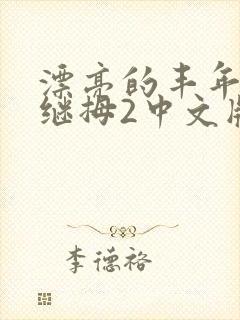 漂亮的丰年
继拇2中文版
李德裕